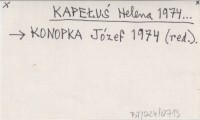 KAPEŁUŚ Helena 1974...
→ KONOPKA Józef 1974 (red.).